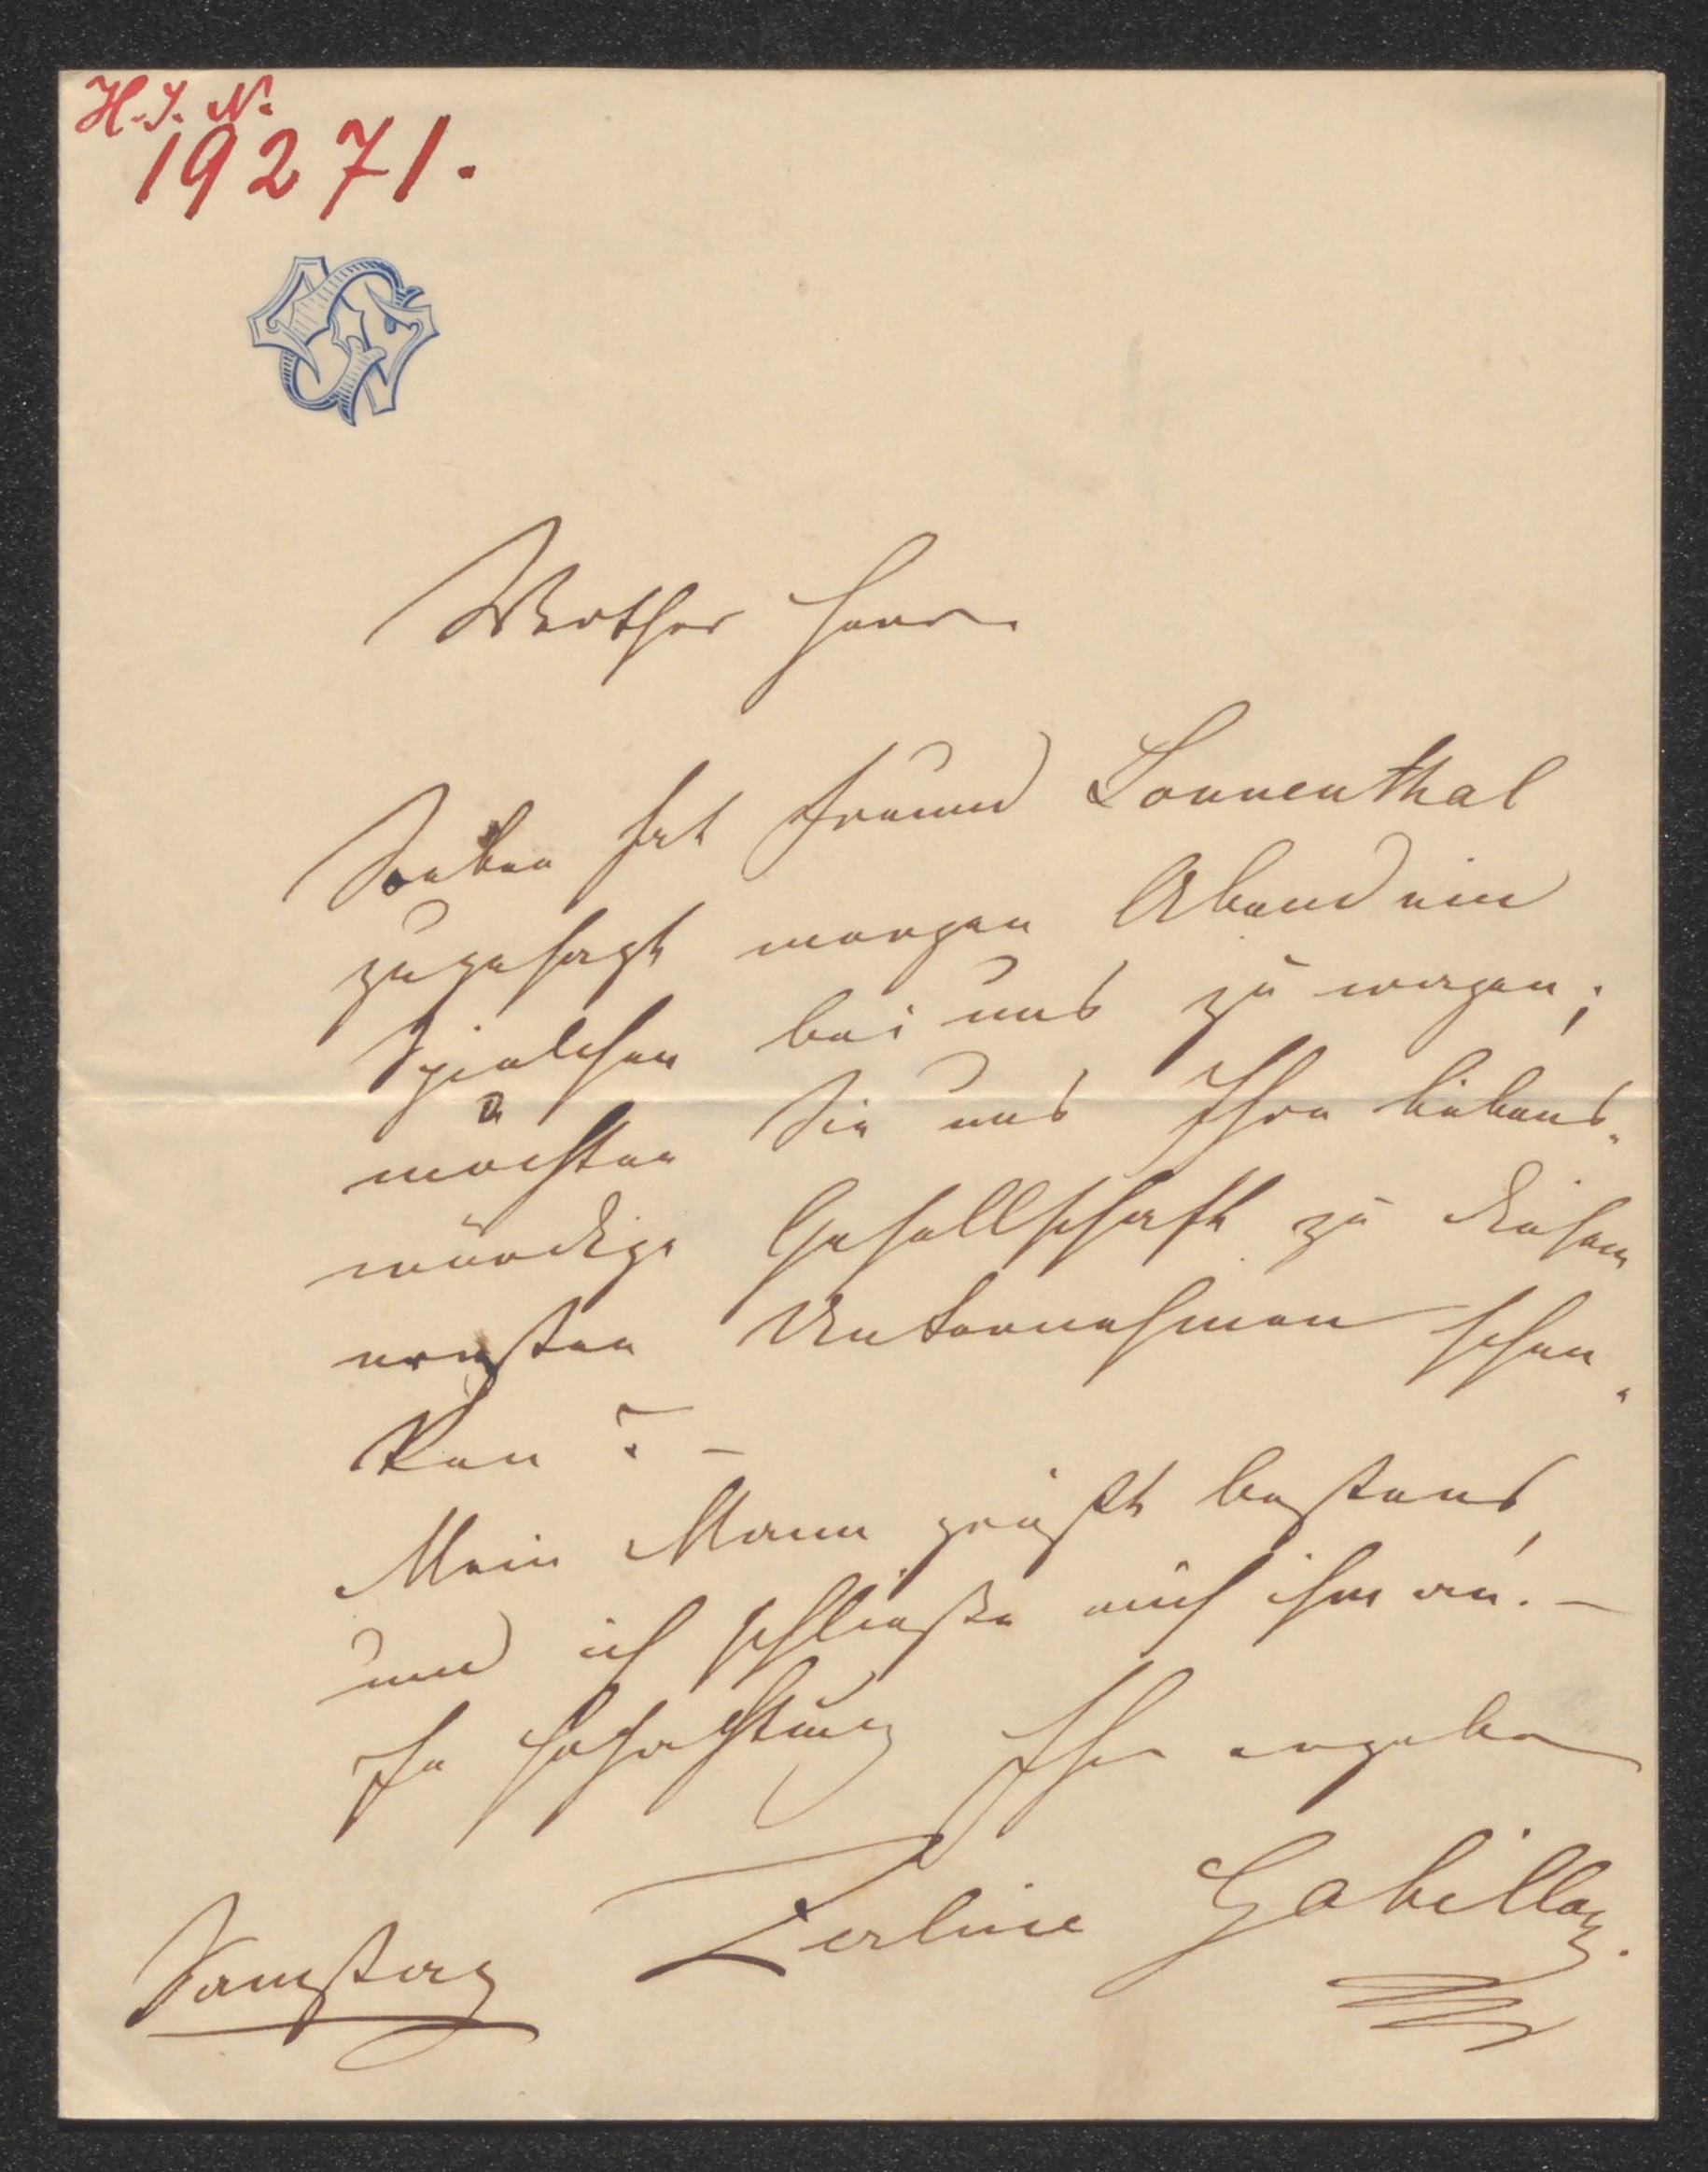 H. I. N.
19271.
Werther Herr
Soeben hat Freund Sonnenthal
zugesagt morgen Abend ein
Spielchen bei uns zu wagen;
möchten Sie uns Ihre liebens-
würdige Gesellschaft zu diesem
ernsten Unternehmen schen-
ken? –
Mein Mann grüßt bestens,
und ich schließe mich ihm an. –
In Hochachtung Ihre ergebene
Zerline Gabillon.
Samstag